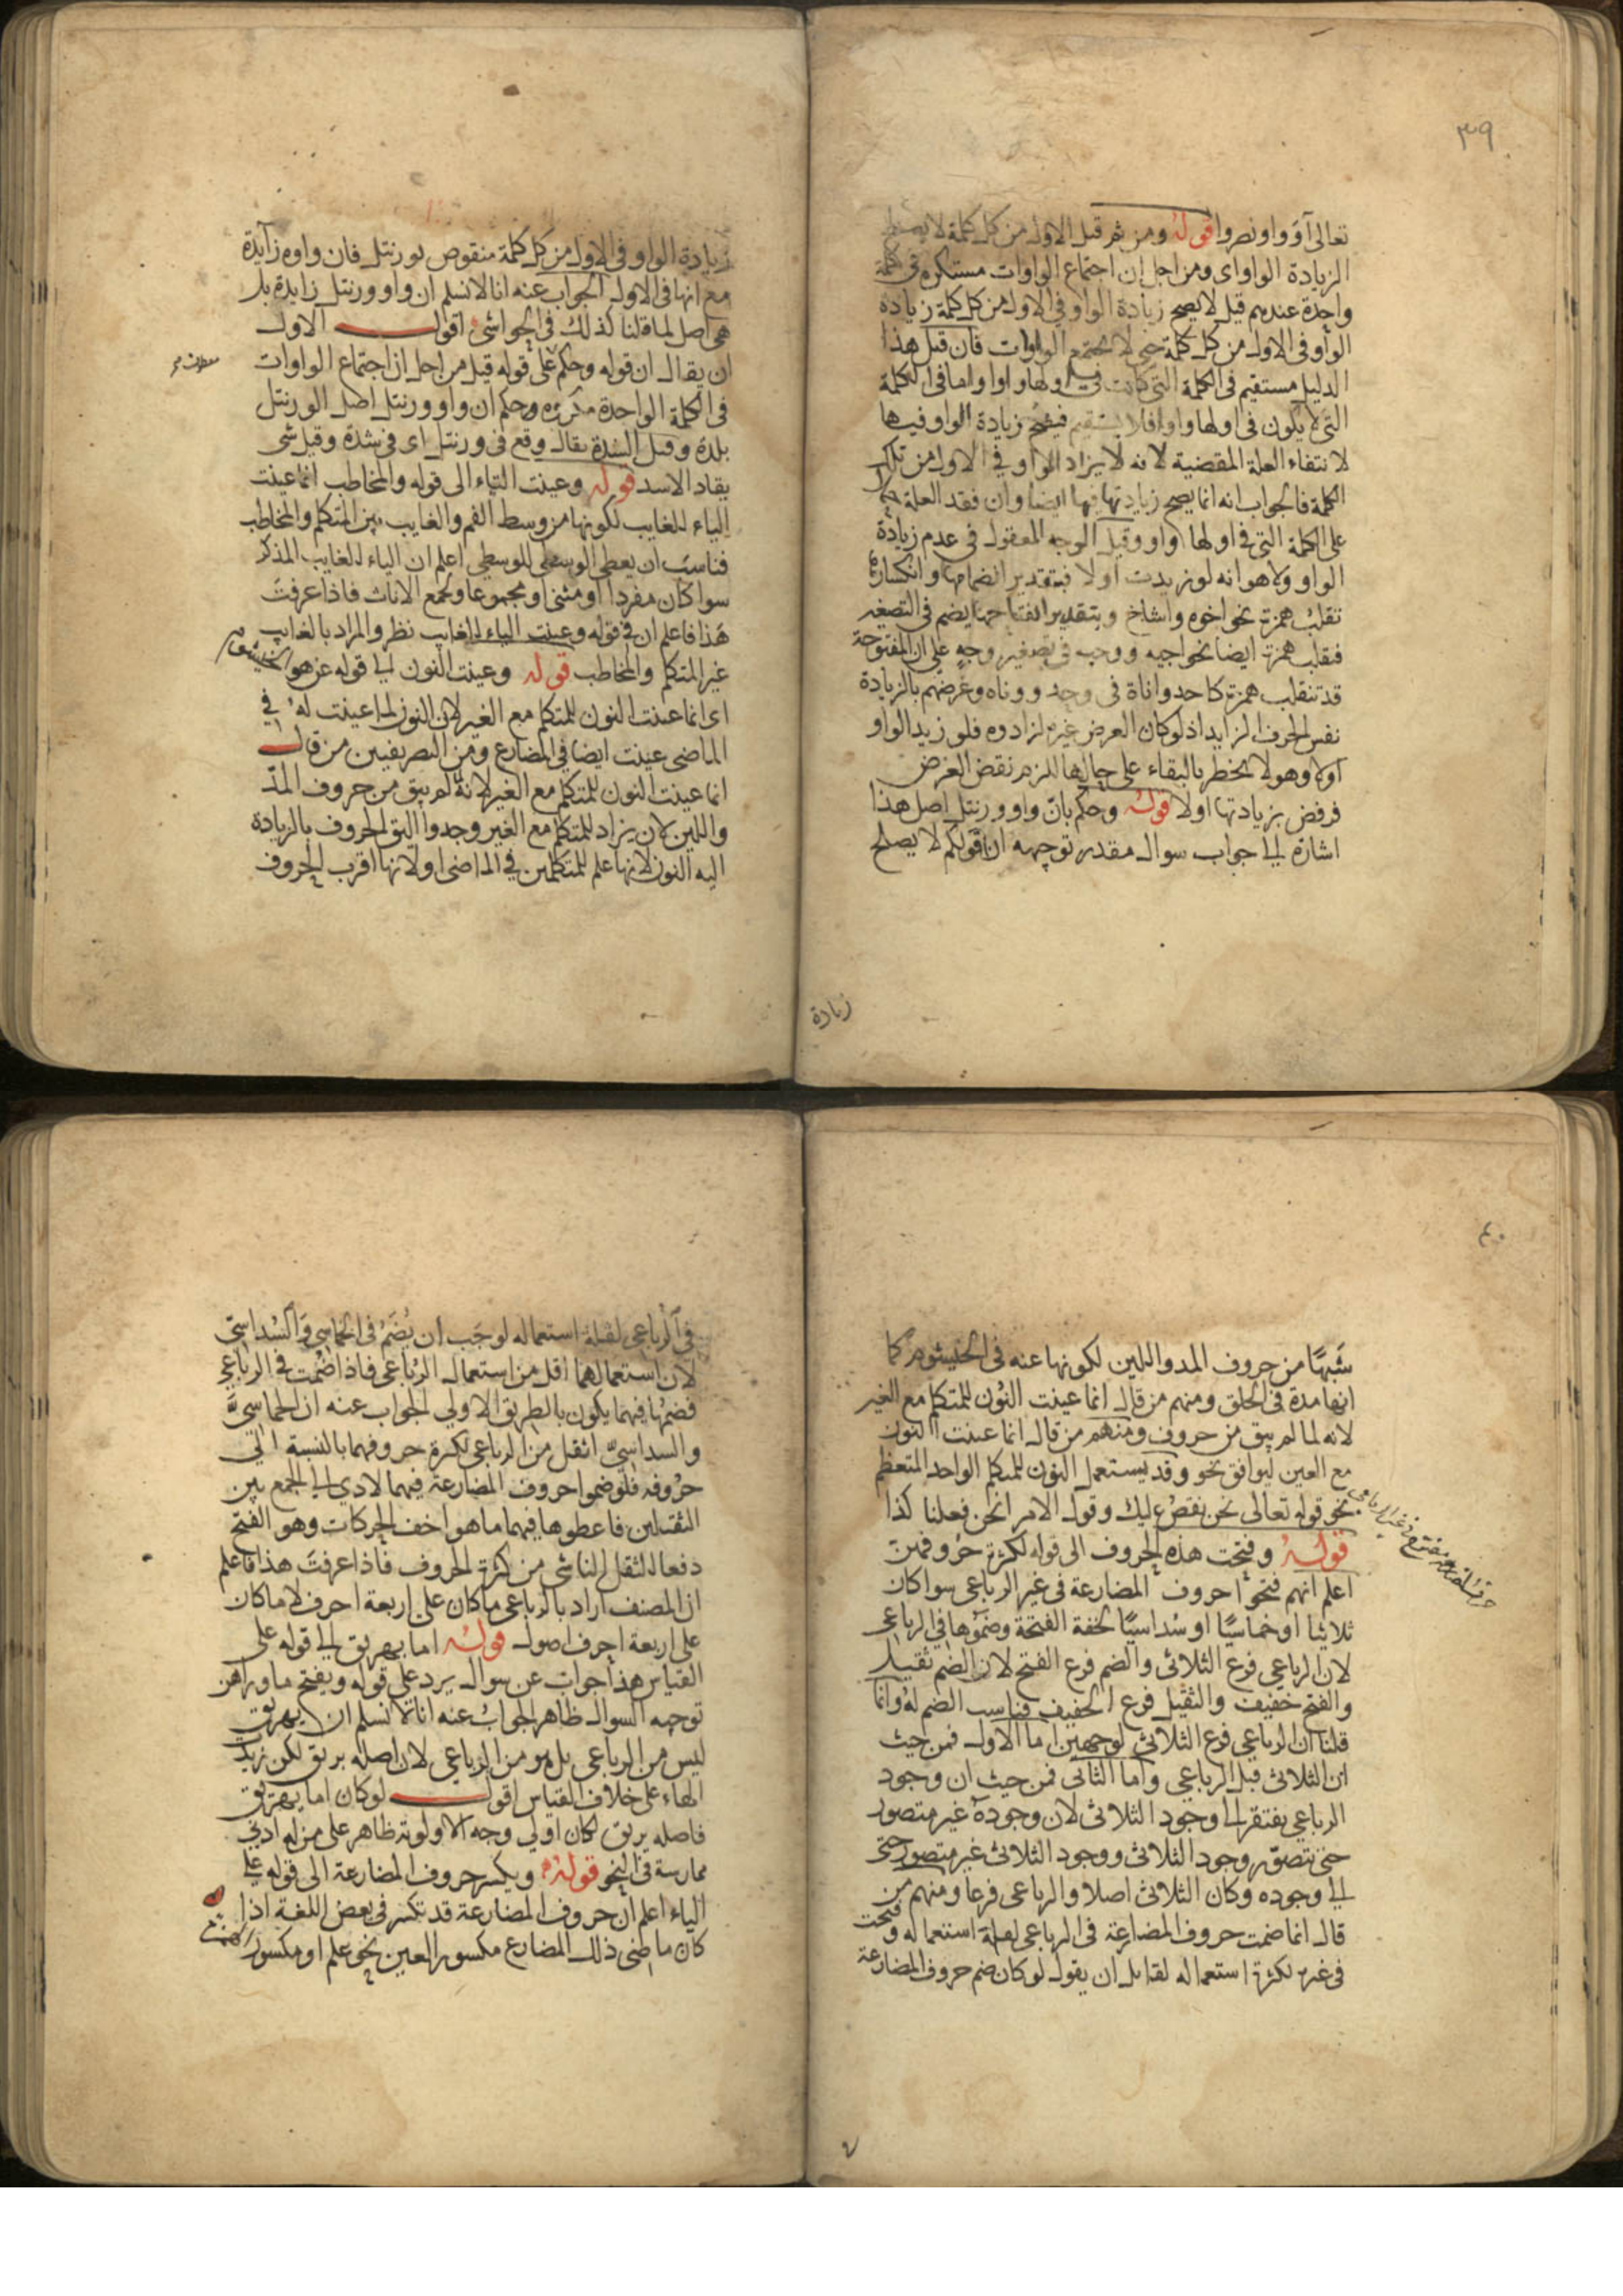 ٣٩
تعالى آوَوا ونصروا قوله ومن ثم قيل الاول من كل كلمة لا يصلح
الزيادة الواو اى ومن اجل ان اجتماع الواوات مستكره فى كلمة
واحدة عندهم قيل لا يصح زيادة الواو فى الاول من كل كلمة زيادة
الواو فى الاول من كل كلمة حتى لا يجتمع الواوات فان قيل هذا
الدليل مستقيم فى الكلمة التى كانت فى اولها واوا واما فى الكلمة
التى لا يكون فى اولها واوا فلا يستقيم فيصح زيادة الواو فيها
لانتفاء العلة المقضية لانه لا يزاد الواو فى الاول من تلك
الكلمة فالجواب انه انما يصح زيادتها فيها ايضا وان فقد العلة
على الكلمة التى فى اولها واو وقيل الوجه المعقول فى عدم زيادة
الواو ولا هو انه لو زيدت اولا فبتقدير انضمامها وانكسارها
تقلب همزة نحو اخوه واشاخ وبتقدير انفتاحها يضم فى التصغير
فتقلب همزة ايضا نحو اجيه ووجيه فى تصغير وجه على ان المفتوحة
قد تنقلب همزة كاحد واناة فى وحد ووناه وغرضهم بالزيادة
نفس الحرف الزايد اذ لو كان العرض غيره لزادوه فلو زيد الواو
اولا وهو لا يخطر بالبقاء على حالها للزم نقض الغرض
فرفض بزيادتها اولا قوله وحكم بانّ واو ورنتل اصل هذا
اشارة الى جواب سوال مقدر توجيهه ان قولكم لا يصلح
زيادة
زيادة الواو فى الاول من كل كلمة منقوص بورنتل فان واوه زايدة
مع انها فى الاول الجواب عنه انا لا نسلم ان واو ورنتل زايدة بل
هى اصل لما قلنا كذلك فى الحواشى اقول الاول
ان يقال ان قوله وحكم على قوله قيل من اجل ان اجتماع الواوات
فى الكلمة الواحدة مكروه وحكم ان واو ورنتل اصل الورنتل
بلدة وقيل الشدة يقال وقع فى ورنتل اى فى شدة وقيل شى
يقاد الاسد قوله وعينت التاء الى قوله والمخاطب انما عينت
الياء للغايب لكونها من وسط الفم والغايب بين المتكلم والمخاطب
فناسب ان يعطى الوسطى للوسطى اعلم ان الياء للغايب المذكر
سوا كان مفردا او مثنى او مجموعا ولجمع الاناث فاذا عرفت
هذا فاعلم ان فى قوله وعينت الياء للغايب نظر والمراد بالغايب
غير المتكلم والمخاطب قوله وعينت النون الى قوله عن هو الخيشوم
اى انما عينت النون للمتكلم مع الغير لان النون لما عينت له فى
الماضى عينت ايضا فى المضارع ومن التصريفيين من قال
انما عينت النون للمتكلم مع الغير لانه لم يبق من حروف المدّ
واللين لان يزاد للمتكلم مع الغير وجدوا اليق الحروف بالزيادة
اليه النون لانها علم للمتكلمين فى الماضى اولانها اقرب الحروف
٤٠
شبهًا من حروف المد واللين لكونها عنه فى الخيشوم كما
انها مدة فى الحلق ومنهم من قال انما عينت النون للمتكلم مع الغير
لانه لما لم يبق من حروف ومنهم من قال انما عينت النون
مع العين ليوافق نحو وقد يستعمل النون للمتكلم الواحد المتعظم
نحو قوله تعالى نحن نقص عليك وقول الامر انحن فعلنا كذا
قوله وفتحت هذه الحروف الى قوله لكثرة حروفهن
اعلم انهم فتحوا حروف المضارعة فى غير الرباعى سوا كان
ثلاثيا او خماسيًا او سُداسيًا لخفة الفتحة وضموها فى الرباعى
لان الرباعى فرع الثلاثى والضم فرع الفتح لان الضم ثقيل
والفتح خفيف والثقيل فرع الخفيف فناسب الضم له وانما
قلنا ان الرباعى فرع الثلاثى لوجهين اما الاول فمن حيث
ان الثلاثى قبل الرباعى واما الثانى فمن حيث ان وجود
الرباعى يفتقر الى وجود الثلاثى لان وجوده غير متصور
حتى تتصوّر وجود الثلاثى ووجود الثلاثى غير متصور حتى
الى وجوده وكان الثلاثى اصلا والرباعى فرعا ومنهم من
قال انما ضمت حروف المضارعة فى الرباعى لقلة استعماله وفتحت
فى غيره لكثرة استعماله لقايل ان يقول لو كان ضم حروف المضارعة
فى الرباعى لقلة استعماله لوجب ان يُضَمّ فى الخماسى والسُداسىّ
لان استعمالهما اقل من استعمال الرباعى فاذا ضمت فى الرباعى
فضمها فيهما يكون بالطريق الاولى الجواب عنه ان الخماسىّ
والسداسىّ اثقل من الرباعى لكثرة حروفهما بالنسبة الى
حروفه فلو ضموا حروف المضارعة فيهما لادى الى الجمع بين
الثقيلين فاعطوها فيهما ما هو اخف الحركات وهو الفتح
دفعا للثقل الناشى من كثرة الحروف فاذا عرفت هذا فاعلم
ان المصنف اراد بالرباعى ما كان على اربعة احرف لا ما كان
على اربعة احرف اصول قوله اما يهريق الى قوله على
القياس هذا جواب عن سوال يرد على قوله ويفتح ما وراهن
توجيه السوال ظاهر الجواب عنه انا لا نسلم ان يهريق
ليس من الرباعى بل هو من الرباعى لان اصله يريق لكن زيد
الهاء على خلاف القياس اقول لو كان اما يهريق
فاصله يريق كان اولى وجه الاولوية ظاهر على من له ادنى
ممارسة فى النحو قوله ويكسر حروف المضارعة الى قوله على
الياء اعلم ان حروف المضارعة قد تكسر فى بعض اللغة اذا
كان ماضى ذلك المضارع مكسور العين نحو علم او مكسور